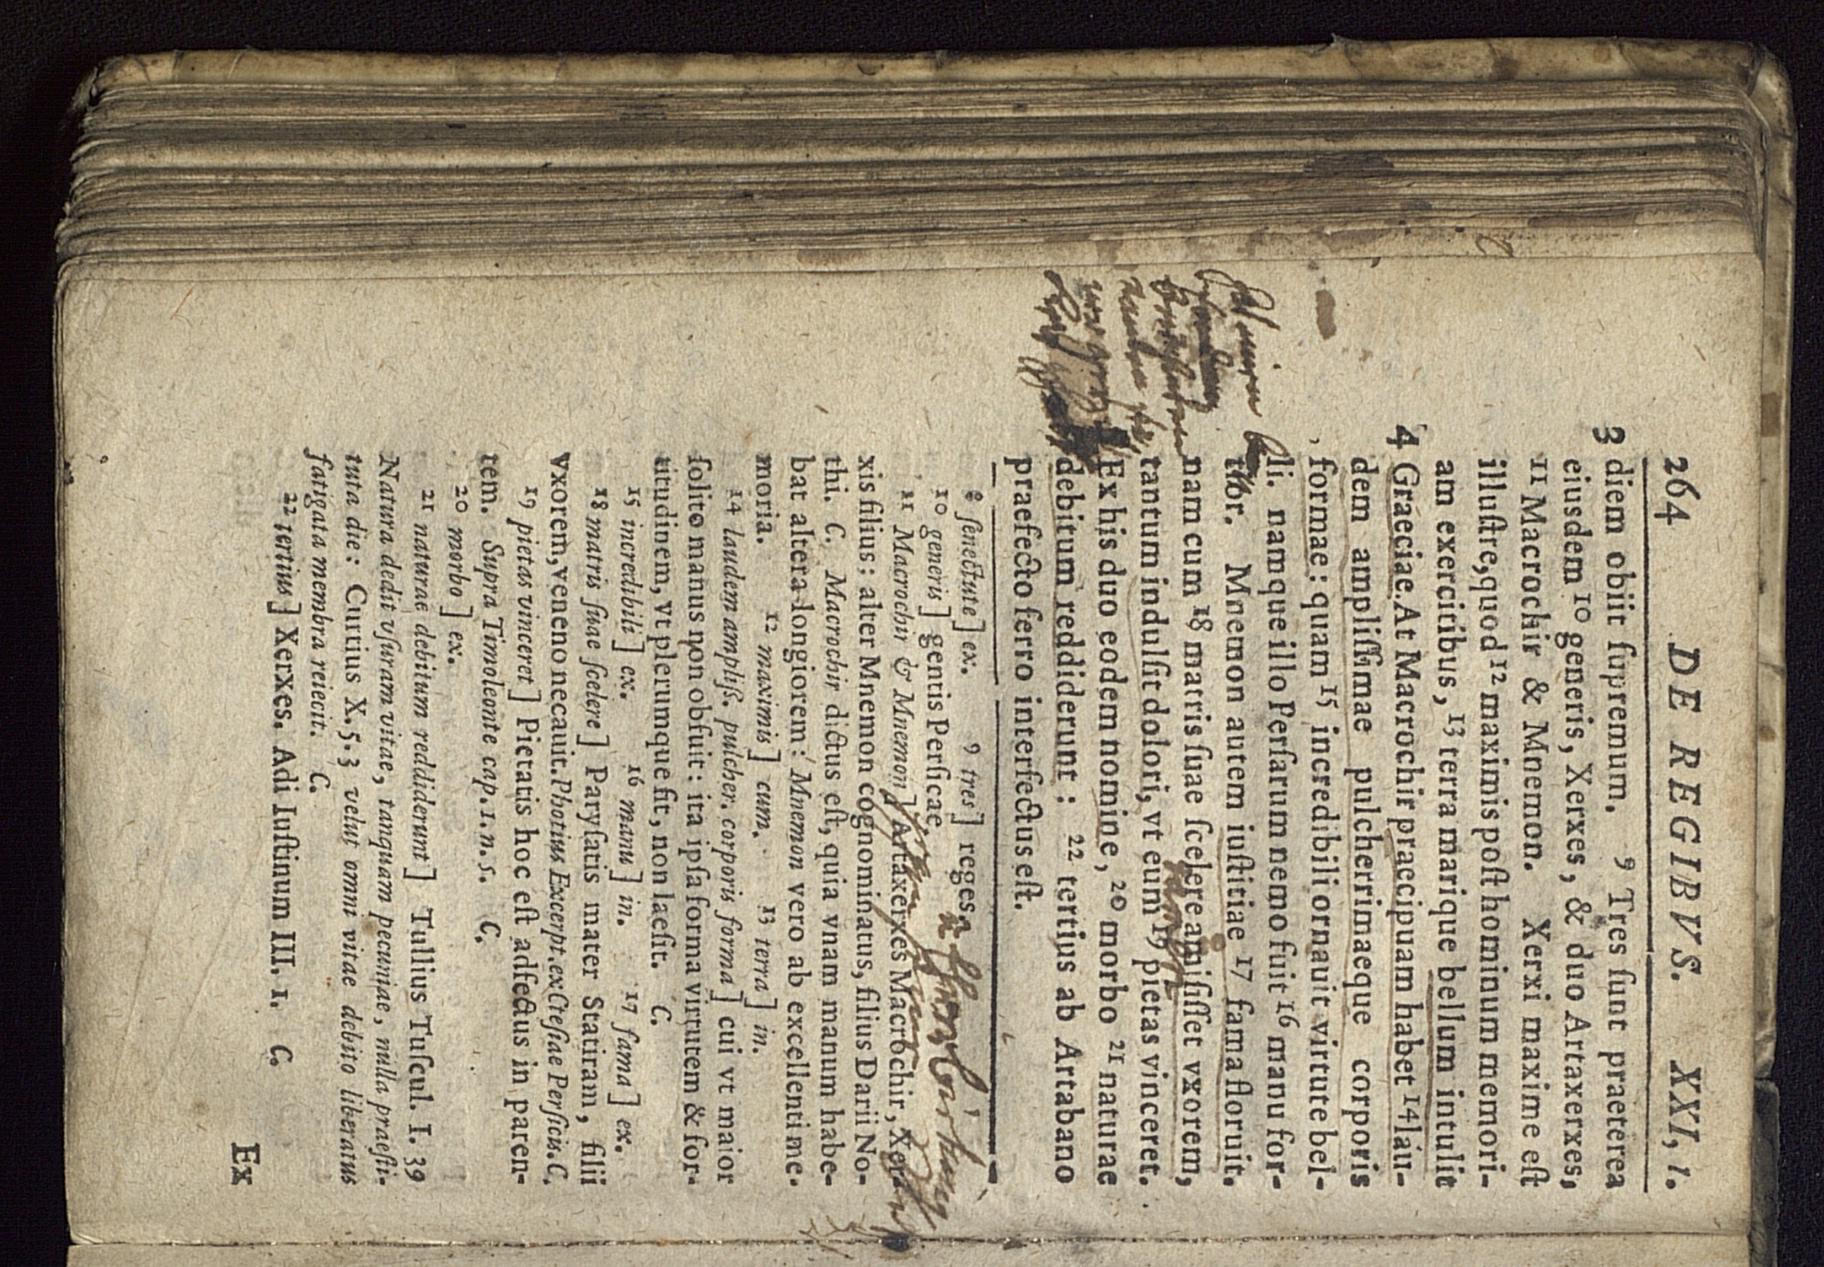 264 DE REGIBVS. XXI, 1.
3 diem obiit ſupremum. 9 Tres ſunt praeterea
eiusdem 10 generis, Xerxes, & duo Artaxerxes,
11 Macrochir & Mnemon. Xerxi maxime eſt
illuſtre, quod 12 maximis poſt hominum memori-
am exercitibus, 13 terra marique bellum intulit
4 Graeciae. At Macrochir praecipuam habet 14 lau-
dem ampliſſimae pulcherrimaeque corporis
formae: quam 15 incredibili ornauit virtute bel-
li. namque illo Perſarum nemo fuit 16 manu for-
tior. Mnemon autem iuſtitiae 17 fama floruit.
nam cum 18 matris ſuae ſcelere amiſiſſet vxorem,
tantum indulſit dolori, vt eum 19 pietas vinceret.
Ex his duo eodem nomine, 20 morbo 21 naturae
debitum reddiderunt: 22 tertius ab Artabano
praefecto ferro interfectus eſt.
8 ſenectute] ex. 9 tres] reges.
10 generis] gentis Perſicae
11 Macrochir & Mnemon] Artaxerxes Macrochir, Xer-
xis filius: alter Mnemon cognominatus, filius Darii No-
thi. C. Macrochir dictus eſt, quia vnam manum habe-
bat altera longiorem: Mnemon vero ab excellenti me-
moria. 12 maximis] cum. 13 terra] in.
14 laudem ampliſſ. pulcher. corporis forma] cui vt maior
ſolito manus non obfuit: ita ipſa forma virtutem & for-
titudinem, vt plerumque fit, non laeſit. C.
15 incredibili] ex. 16 manu] in. 17 fama] ex.
18 matris ſuae ſcelere] Paryſatis mater Statiram, filii
vxorem, veneno necauit. Photius Excerpt. ex Cteſiae Perſicis. C.
19 pietas vinceret] Pietatis hoc eſt adfectus in paren-
tem. Supra Timoleonte cap. 1. n. 5. C.
20 morbo] ex.
21 naturae debitum reddiderunt] Tullius Tuſcul. I. 39
Natura dedit vſuram vitae, tanquam pecuniae, nulla praeſti-
tuta die: Curtius X. 5. 3 velut omni vitae debito liberatus
fatigata membra reiecit. C.
22 tertius] Xerxes. Adi Iuſtinum III. 1. C.
Ex